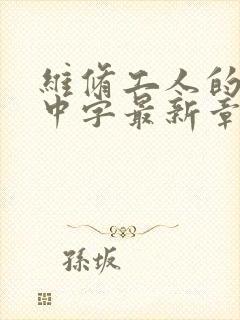 維脩工人的
中字最新章
孫坂